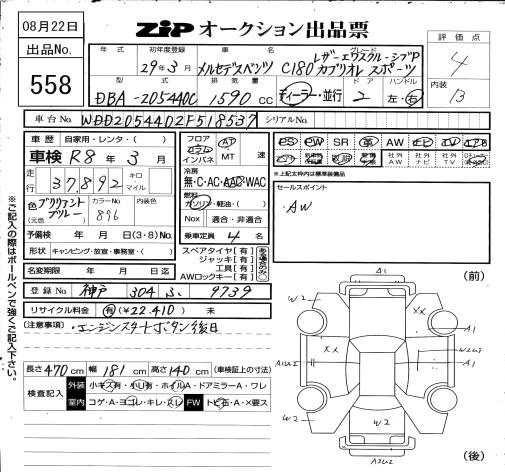 08月22日
出品No.
558
ZIP オークション出品票
評価点
4
内装
13
年式 初年度登録 車名 グレード
29年3月 メルセデスベンツ C180 カブリオレ スポーツ
レザーエクスクルーシブP
型式 排気量 ドア ハンドル
DBA-205440C 1590cc ディーラー・並行 2 左・右
車台No. WDD2054402F518537 シリアルNo.
車歴 自家用・レンタ・( )
車検 R8年3月
走行 37,892 キロ マイル
色 ブリリアントブルー (元色) カラーNo. 896 内装色
予備検 年 月 日(3・8)No.
形状 キャンピング・放宣・事務室・( )
名変期限 年 月 日迄
フロア コラム インパネ AT MT 速
冷房 無・C・AC・AAC・WAC
燃料 ガソリン・軽油・( )
Nox 適合・非適合
乗車定員 4名
スペアタイヤ【有】
ジャッキ【有】
工具【有】
AWロックキー【有】
PS PW SR 革 AW ナビ TV エアB
社外AW 社外ナビ 社外TV
*上記太枠内は標準装備品
セールスポイント
・AW
登録No. 神戸 304 ふ 9739
リサイクル料金 有(¥22,410)・無
(注意事項) ・エンジンスタートボタン後日
長さ470cm 幅181cm 高さ140cm (車検証上の寸法)
検査記入 外装 小キズ有・小U有・ホイルA・ドアミラーA・ワレ
室内 コゲ・A・ヨゴレ・キレ・スレ FW トビ石・A・×要ス
※ご記入の際はボールペンで強くご記入下さい。
(前)
A1
W2
XX
A1
XX
A1U2
W2U3
A1
W2
W2
W2
A3U2
(後)